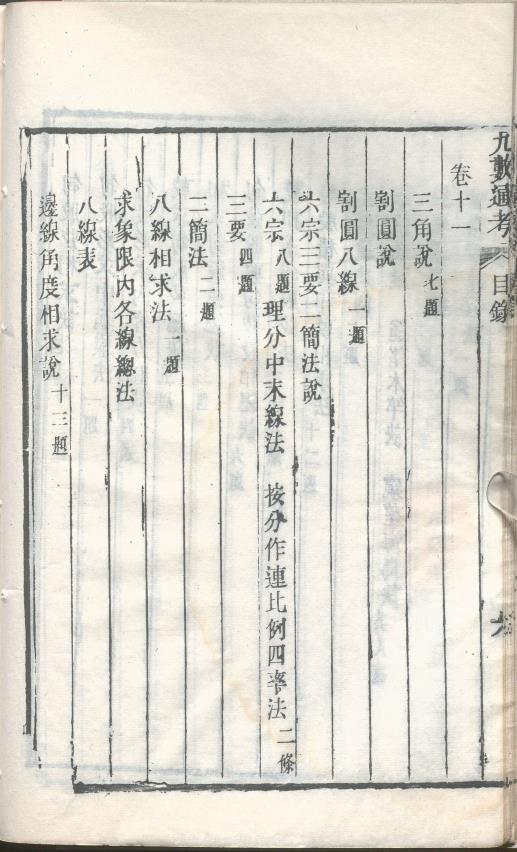 九數通考 目錄 六
卷十一
三角說 七題
割圓說
割圓八線 一題
六宗三要二簡法說
六宗 八題 理分中末線法 按分作連比例四率法 二條
三要 四題
二簡法 二題
八線相求法 一題
求象限內各線總法
八線表
邊線角度相求說 十三題